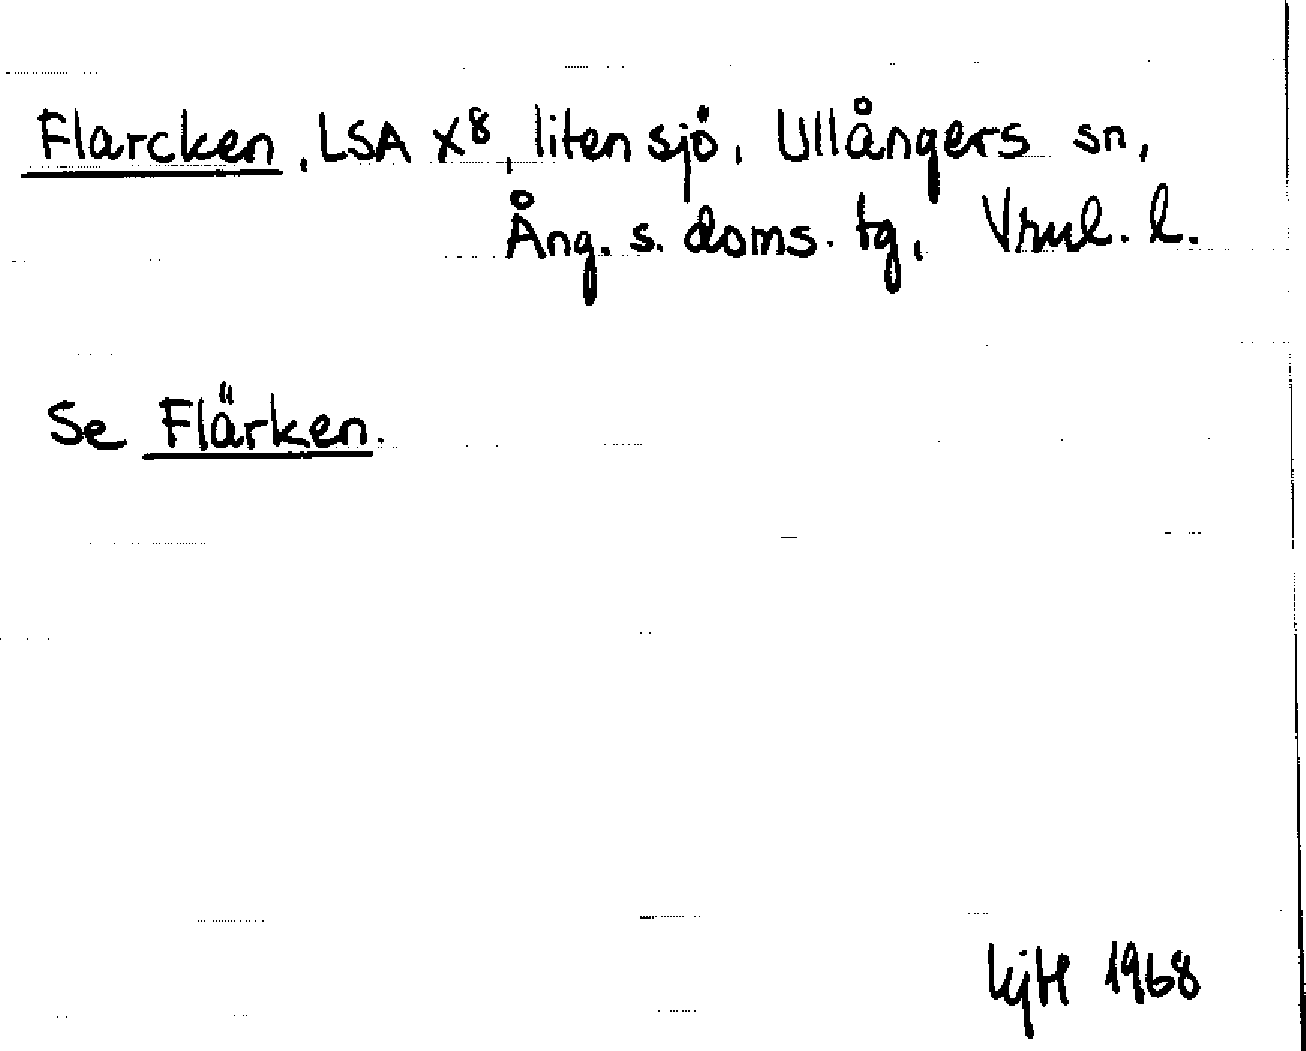 Flarcken, LSA X⁸, liten sjö, Ullångers sn,
Ång. s. doms. tg, Vrnl. l.
Se Flärken.
1968